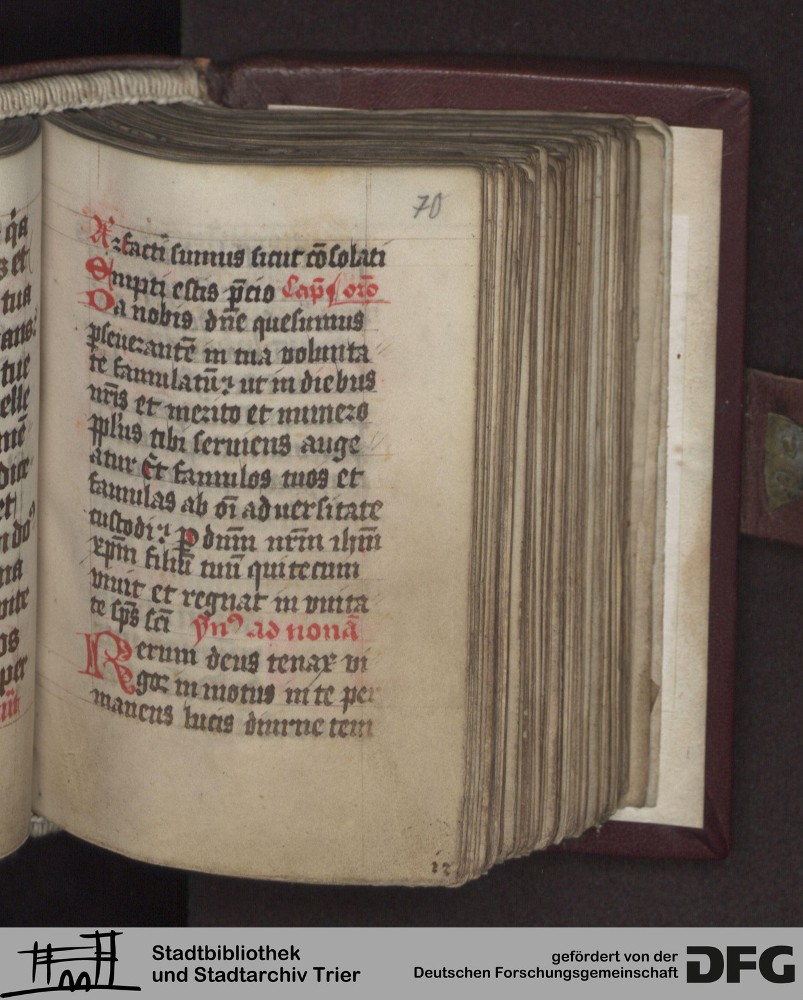 70
facti sumus sicut cōsolati
Empti estis p̄cio Cap̄ l orō
Da nobis dn̄e quesumus
ꝑseuerantē in tua volunta
te famulatū ꝛ ut in diebus
nr̄is et merito et numero
ppl̄us tibi seruiens auge
atur Et famulos tuos et
famulas ab oī aduersitate
custodi ꝛ ꝑ dn̄m nr̄m ihm̄
xp̄m filiū tuū qui tecum
viuit et regnat in vnita
te sp̄s sc̄i yn⁹ ad nonā
Rerum deus tenax vi
gor in motus in te per
manens lucis diurne tem
12
Stadtbibliothek
und Stadtarchiv Trier
gefördert von der
Deutschen Forschungsgemeinschaft
DFG